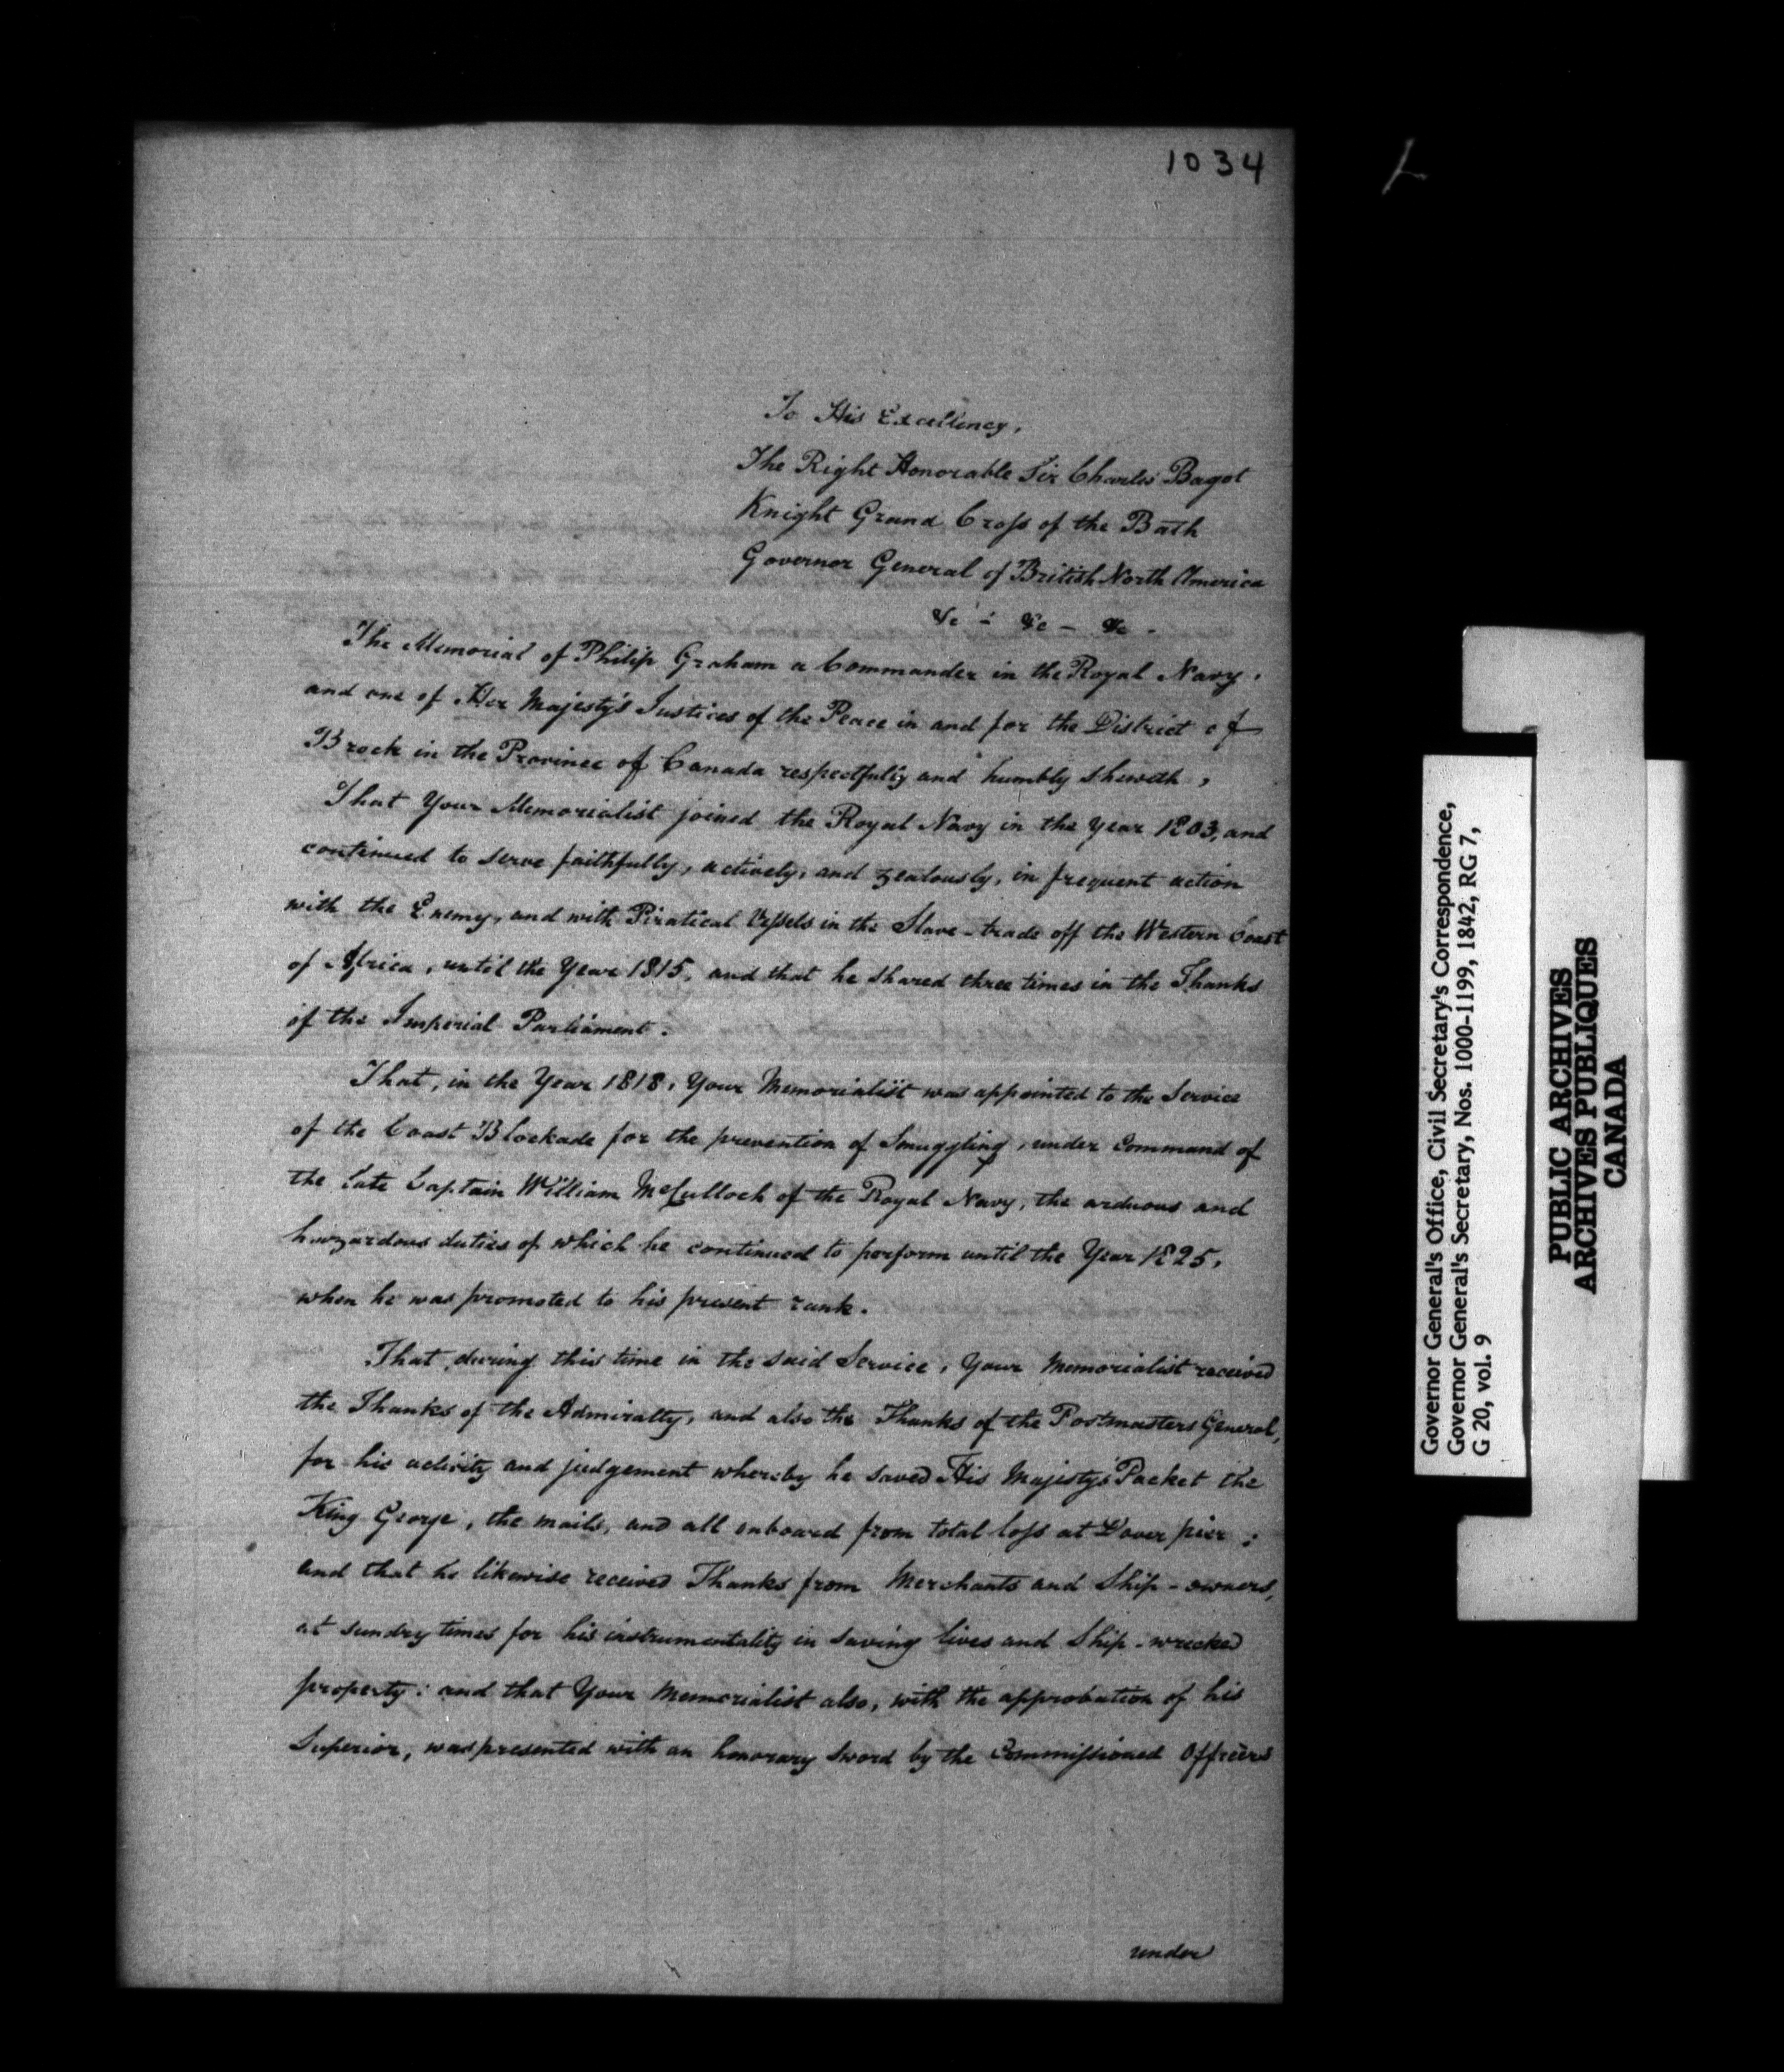 1034
To His Excellency,
The Right Honorable Sir Charles Bagot
Knight Grand Cross of the Bath
Governor General of British North America
&c - &c - &c -
The Memorial of Philip Graham a Commander in the Royal Navy,
and one of Her Majesty's Justices of the Peace in and for the District of
Brock in the Province of Canada respectfully and humbly sheweth,
That Your Memorialist joined the Royal Navy in the Year 1803, and
continued to serve faithfully, actively, and zealously, in frequent action
with the Enemy, and with Piratical Vessels in the Slave-trade off the Western Coast
of Africa, until the Year 1815, and that he shared three times in the Thanks
of the Imperial Parliament.
That, in the Year 1818, Your Memorialist was appointed to the Service
of the Coast Blockade for the prevention of Smuggling, under Command of
the late Captain William McCulloch of the Royal Navy, the arduous and
hazardous duties of which he continued to perform until the Year 1825,
when he was promoted to his present rank.
That, during this time in the said Service, Your Memorialist received
the Thanks of the Admiralty, and also the Thanks of the Postmasters General,
for his activity and judgement whereby he saved His Majesty's Packet the
King George, the mails, and all onboard from total loss at Dover pier;
and that he likewise received Thanks from Merchants and Ship-owners,
at sundry times for his instrumentality in saving lives and Ship-wrecked
property: and that Your Memorialist also, with the approbation of his
Superior, was presented with an honorary Sword by the Commissioned Officers
under
Governor General's Office, Civil Secretary's Correspondence,
Governor General's Secretary, Nos. 1000-1199, 1842, RG 7,
G 20, vol. 9
PUBLIC ARCHIVES
ARCHIVES PUBLIQUES
CANADA